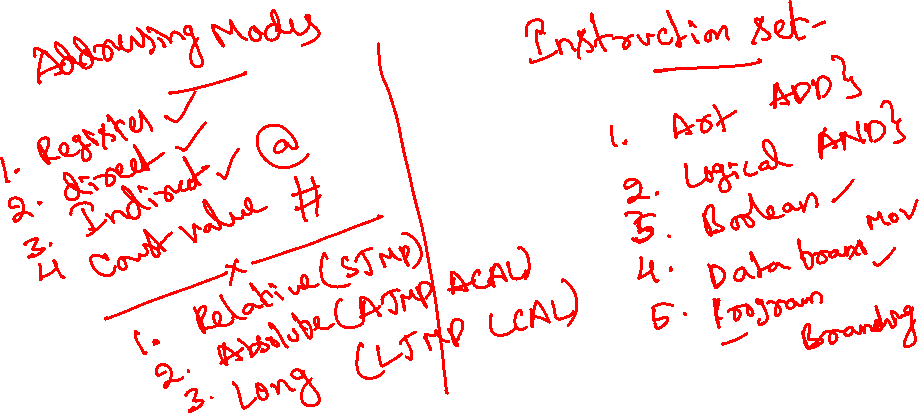 Addressing Modes
1. Register ✓
2. direct ✓
3. Indirect ✓ @
4 Const value #
x
1. Relative (SJMP)
2. Absolute (AJMP ACAL)
3. Long (LJMP LCAL)
Instruction set-
1. Art ADD}
2. Logical AND}
3. Boolean ✓
4. Data MOV
5. Program ✓
Branding